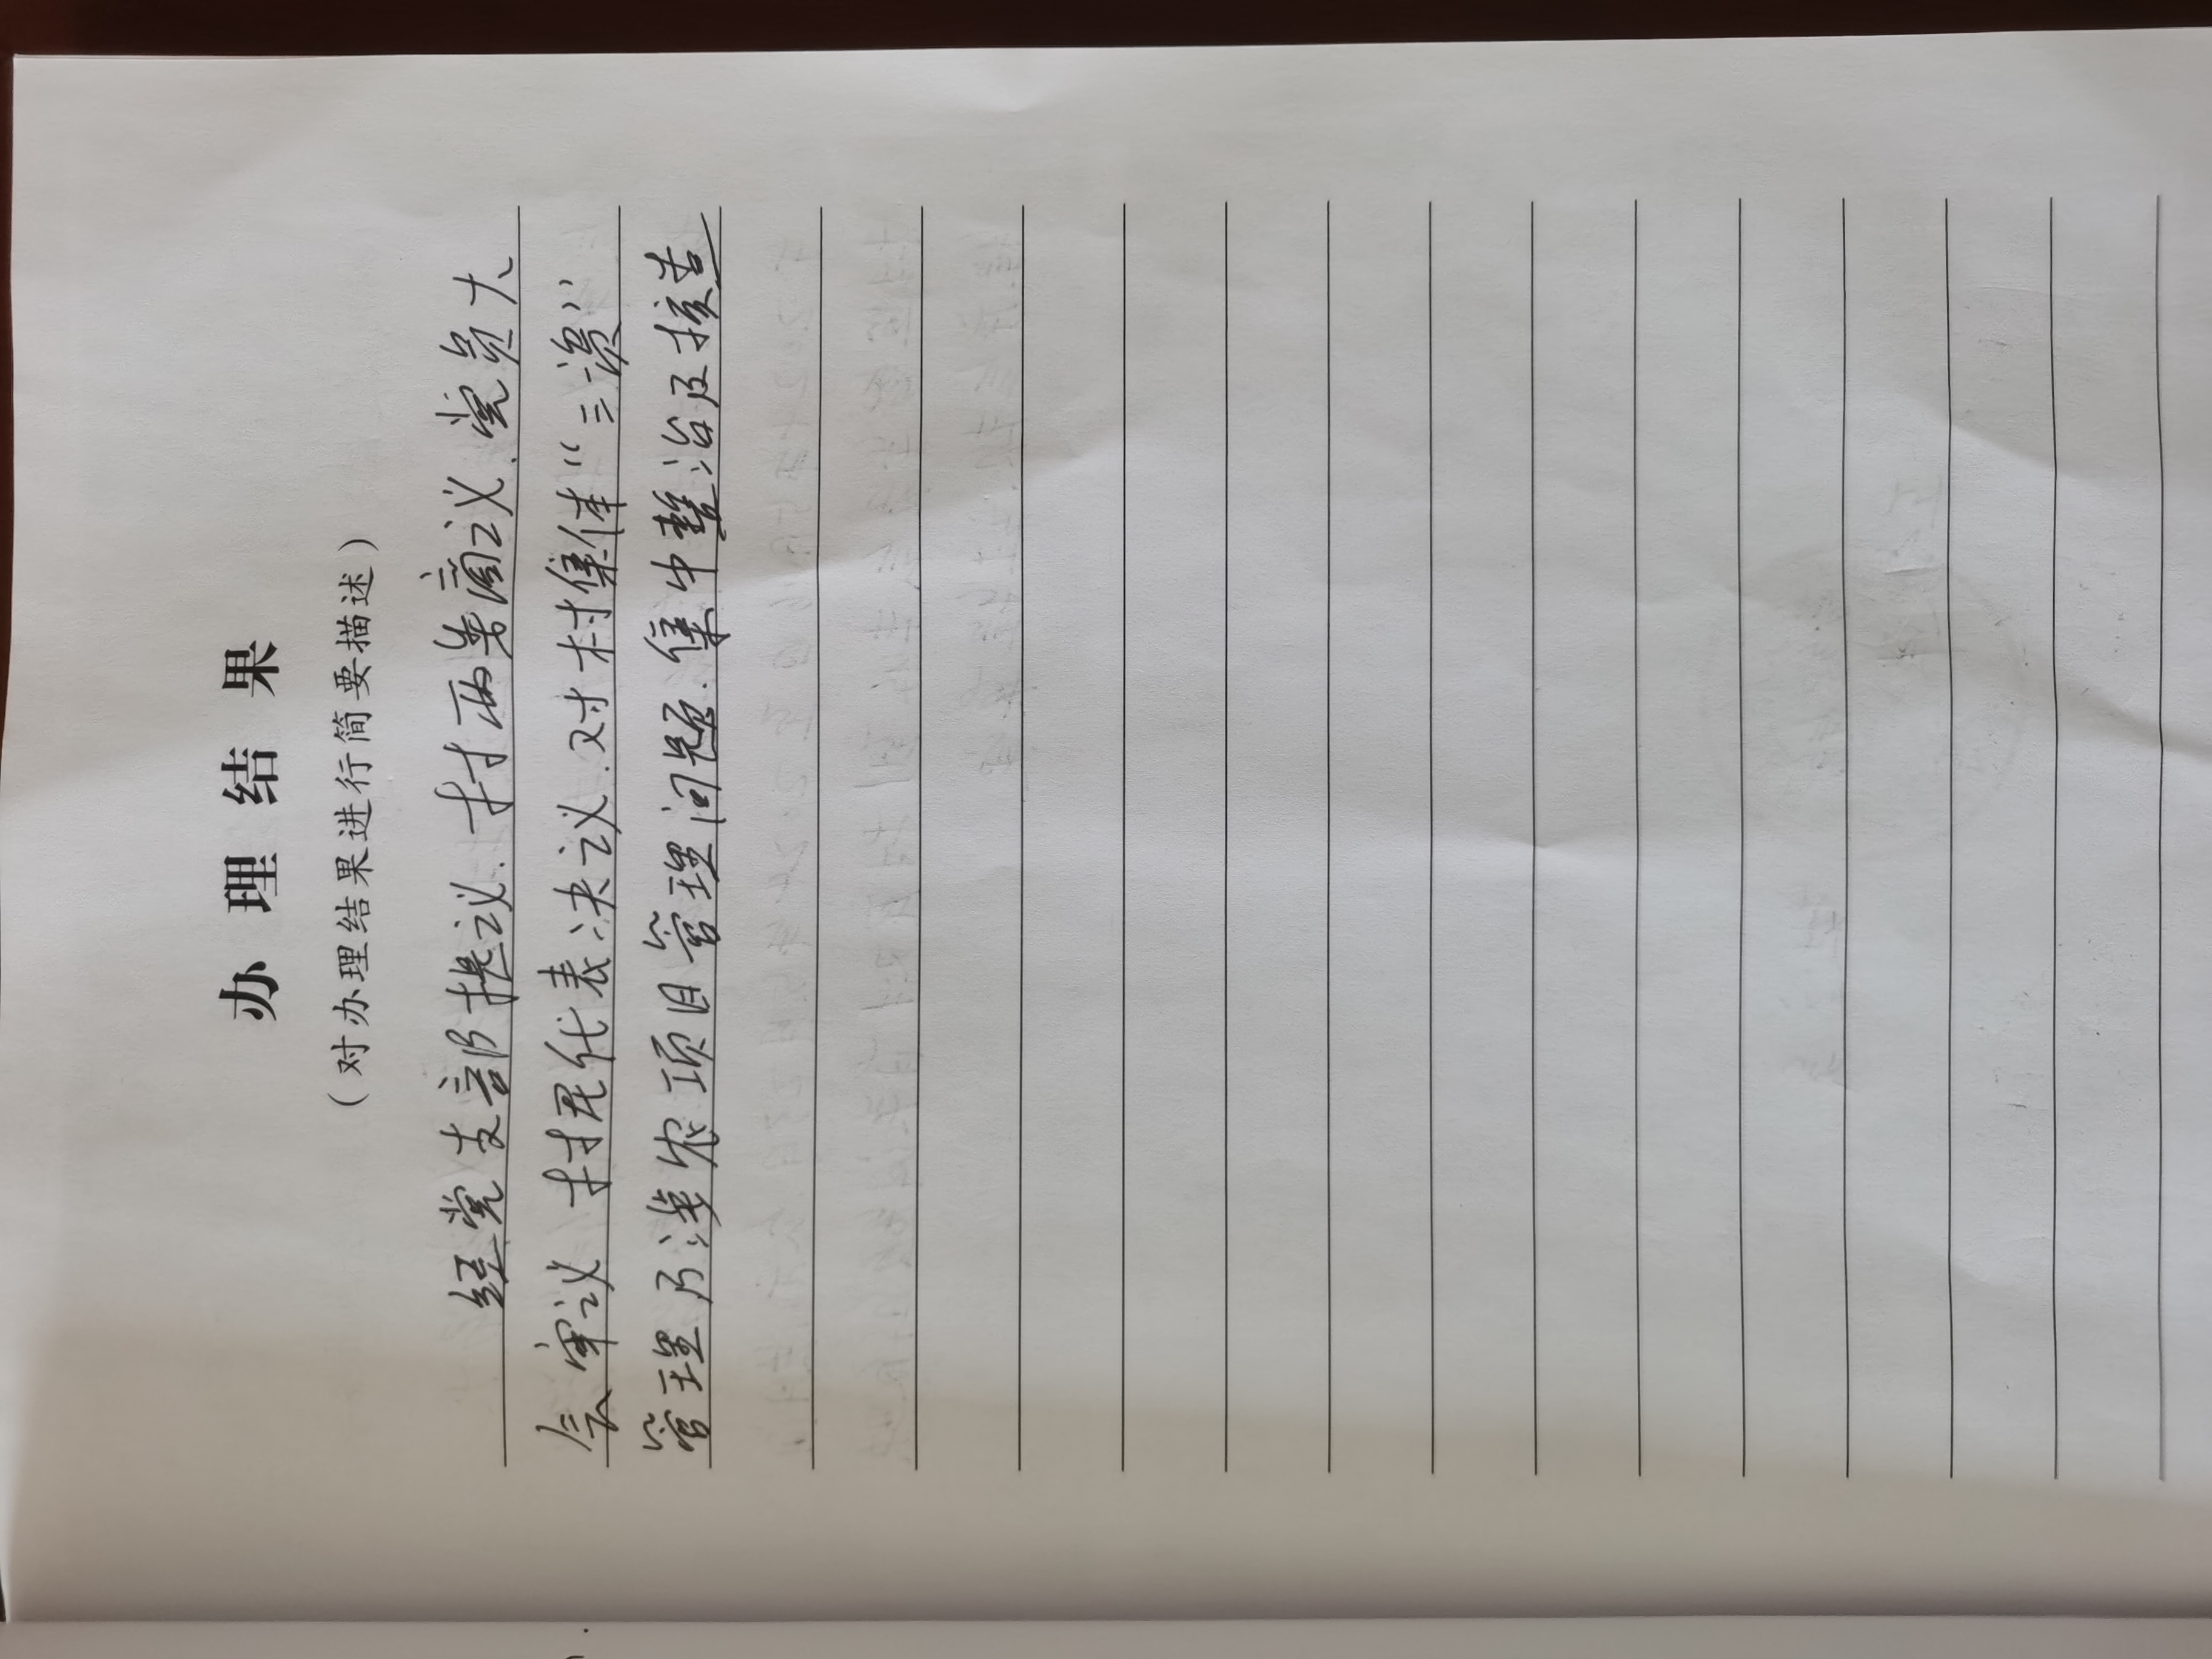 办理结果
（对办理结果进行简要描述）
经党支部提议.村两委商议.党员大
会审议 村民代表决议.对村集体“三资”
管理及涉农项目管理问题.集中整治及核查